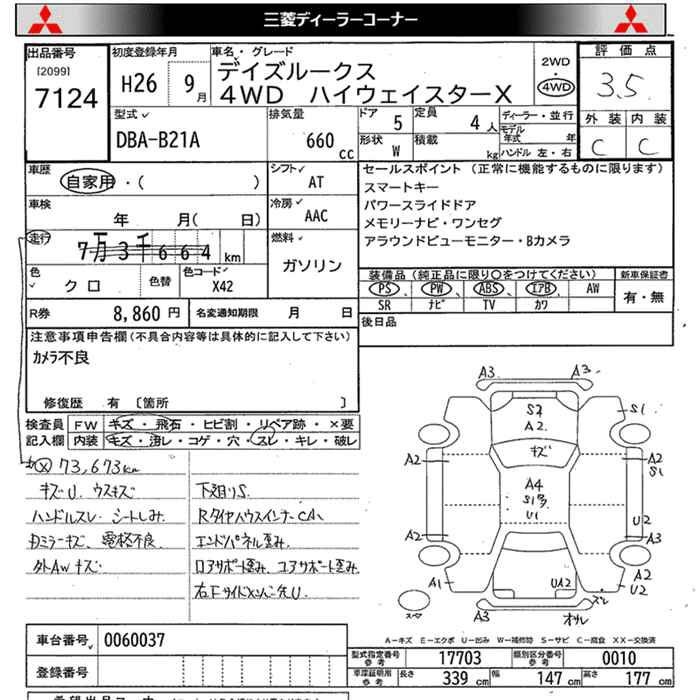 三菱ディーラーコーナー
出品番号
[2099]
7124
初度登録年月
H26 9月
車名・グレード
デイズルークス
4WD ハイウェイスターX
2WD
4WD
評価点
3.5
外装 内装
C C
型式
DBA-B21A
排気量
660 cc
ドア 5
定員 4 人
形状 W
積載 kg
ディーラー・並行
モデル年式 年
ハンドル 左・右
車歴
自家用・( )
シフト
AT
車検
年 月( 日)
冷房
AAC
走行
7万3千664 km
燃料
ガソリン
色
クロ
色替
色コード
X42
R券 8,860 円
名変通知期限 月 日
セールスポイント (正常に機能するものに限ります)
スマートキー
パワースライドドア
メモリーナビ・ワンセグ
アラウンドビューモニター・Bカメラ
装備品 (純正品に限り○をつけてください)
新車保証書
PS PW ABS エアB AW
有・無
SR ナビ TV カワ
後日品
注意事項申告欄 (不具合内容等は具体的に記入して下さい)
カメラ不良
修復歴 有 [箇所 ]
検査員記入欄
FW キズ・飛石・ヒビ割・リペア跡・×要
内装 キズ・汚レ・コゲ・穴・スレ・キレ・破レ
73,673km
キズU. ウスキズ
ハンドルスレ. シートしみ.
ミラーキズ、電格不良.
外AWキズ
下廻りS.
RタイヤハウスインナーCA.
エンドパネル歪み.
ロアサポート歪み. コアサポート歪み.
A3 A3
S2
A2
S1
キズ
A2
A2
S1
A4
S1多
U1
U2
A2
A3
A1
UA2
A2
U2
スペア
A3
ズレ
A-キズ E-エクボ U-凹み W-補修跡 S-サビ C-腐食 XX-交換済
車台番号 0060037
登録番号
型式指定番号 参考 17703
類別区分番号 参考 0010
車庫証明用 参考 長さ 339 cm 幅 147 cm 高さ 177 cm